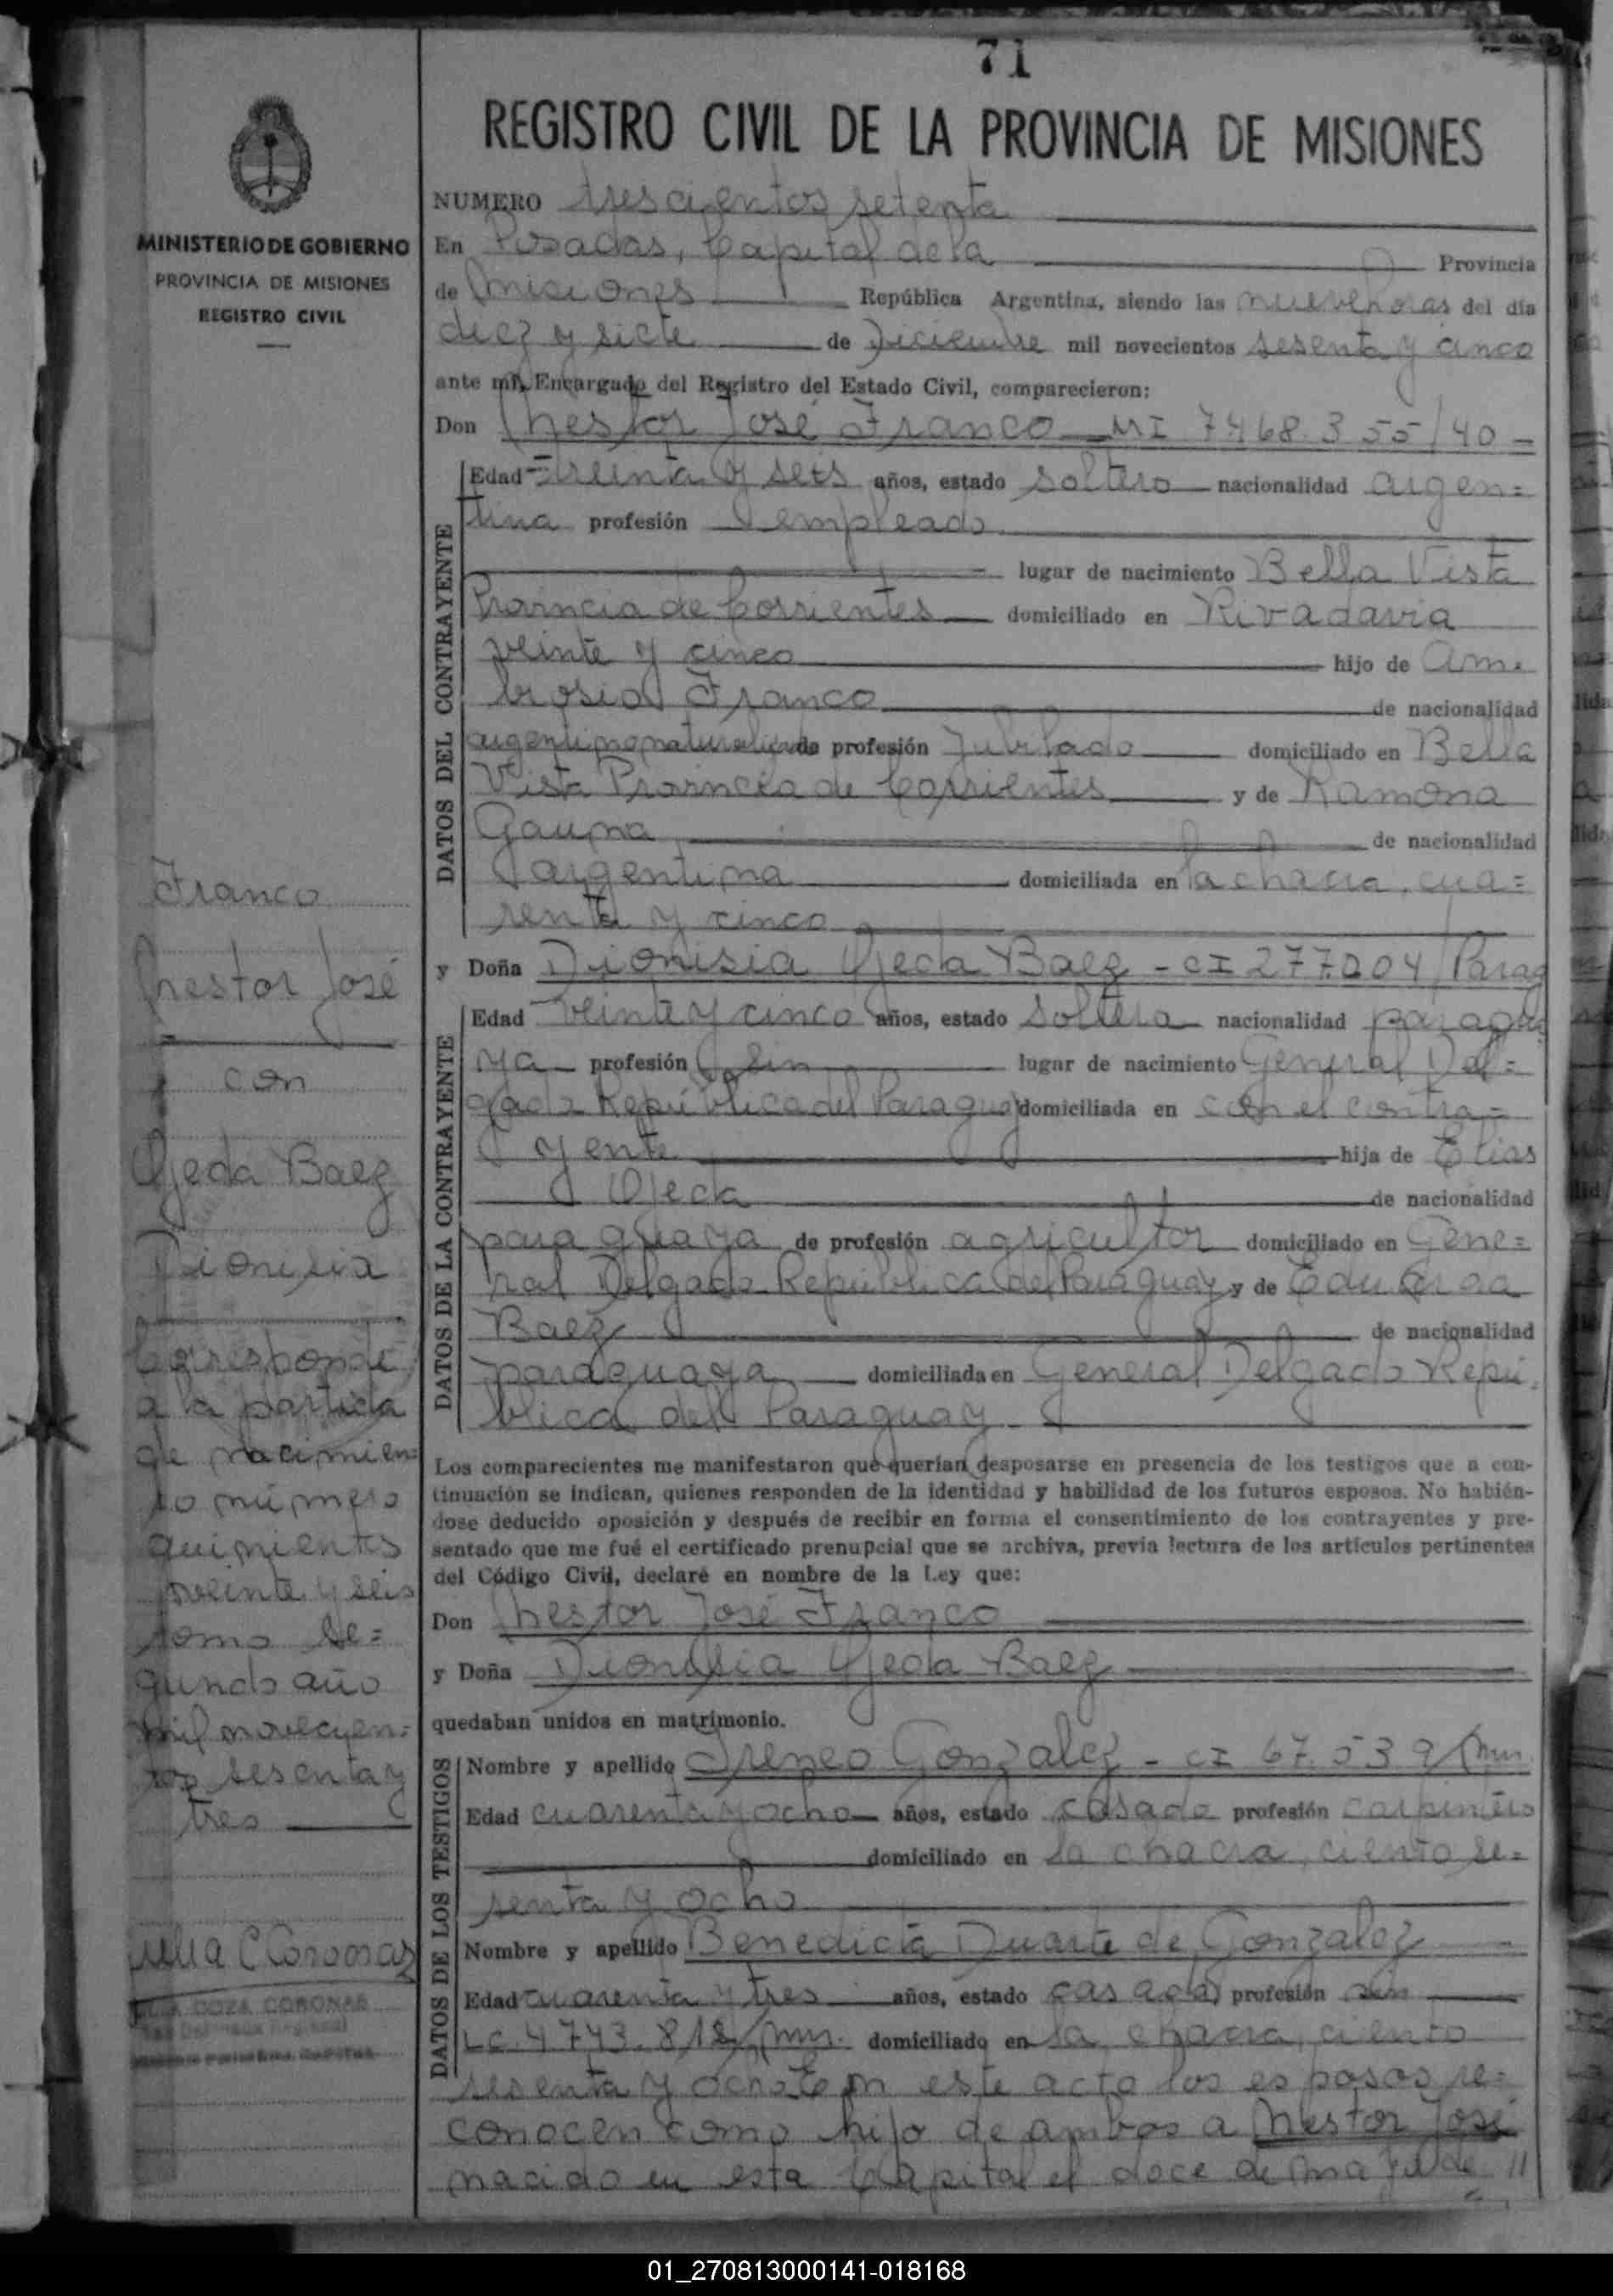 71
REGISTRO CIVIL DE LA PROVINCIA DE MISIONES
MINISTERIO DE GOBIERNO
PROVINCIA DE MISIONES
REGISTRO CIVIL
NUMERO trescientos setenta
En Posadas, Capital de la Provincia
de Misiones República Argentina, siendo las nueve horas del día
diez y siete de Diciembre mil novecientos sesenta y cinco
ante mí, Encargado del Registro del Estado Civil, comparecieron:
Don Nestor José Franco MI 7468.355/40
DATOS DEL CONTRAYENTE
Edad treinta y seis años, estado soltero nacionalidad argen=
tina profesión empleado
lugar de nacimiento Bella Vista
Provincia de Corrientes domiciliado en Rivadavia
veinte y cinco hijo de Am=
brosio Franco de nacionalidad
argentino naturalizado profesión Jubilado domiciliado en Bella
Vista Provincia de Corrientes y de Ramona
Gauna de nacionalidad
argentina domiciliada en la chacra cua=
renta y cinco
y Doña Dionisia Ojeda Baez - CI 277.204/Parag
DATOS DE LA CONTRAYENTE
Edad veinte y cinco años, estado soltera nacionalidad paragua
ya profesión sin lugar de nacimiento General Del=
gado República del Paraguay domiciliada en con el contra=
yente hija de Elias
Ojeda de nacionalidad
paraguaya de profesión agricultor domiciliado en Gene=
ral Delgado República del Paraguay y de Eduarda
Baez de nacionalidad
paraguaya domiciliada en General Delgado Repú=
blica del Paraguay
Los comparecientes me manifestaron que querían desposarse en presencia de los testigos que a con-
tinuación se indican, quienes responden de la identidad y habilidad de los futuros esposos. No habién-
dose deducido oposición y después de recibir en forma el consentimiento de los contrayentes y pre-
sentado que me fué el certificado prenupcial que se archiva, previa lectura de los artículos pertinentes
del Código Civil, declaré en nombre de la Ley que:
Don Nestor José Franco
y Doña Dionisia Ojeda Baez
quedaban unidos en matrimonio.
DATOS DE LOS TESTIGOS
Nombre y apellido Ireneo Gonzalez - CI 67.539/mns
Edad cuarenta y ocho años, estado casado profesión carpintero
domiciliado en la chacra ciento se=
senta y ocho
Nombre y apellido Benedicta Duarte de Gonzalez
Edad cuarenta y tres años, estado casada profesión sin
LC. 4743.812/mns. domiciliado en la chacra ciento
sesenta y ocho En este acto los esposos re=
conocen como hijo de ambos a Nestor José
nacido en esta Capital el doce de mayo de
Franco
Nestor José
con
Ojeda Baez
Dionisia
Corresponde
a la partida
de nacimien=
to número
quinientos
veinte y seis
tomo Se=
gundo año
mil novecien=
tos sesenta y
tres
Julia C Coronas
COZA CORONAS
01_270813000141-018168